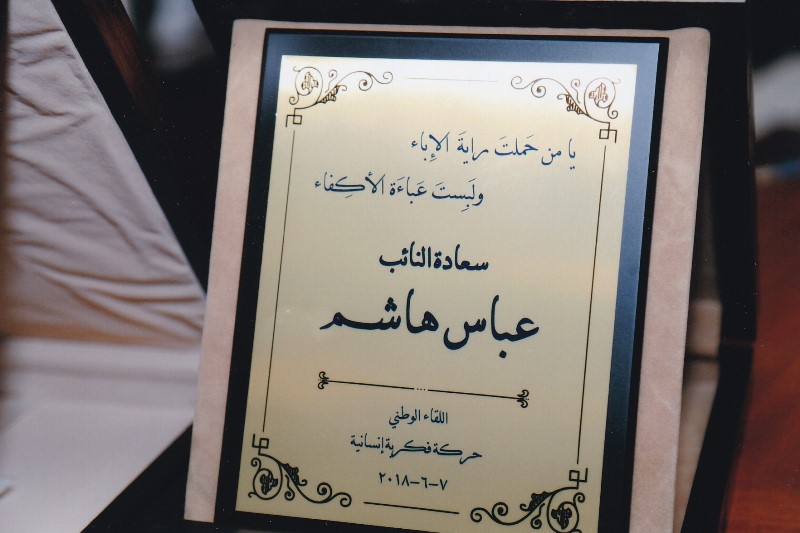 يا من حَملتَ رايةَ الإِباء
ولَبِستَ عَباءَة الأكِفاء
سعادة النائب
عباس هاشم
اللقاء الوطني
حركة فكرية إنسانية
٧-٦-٢٠١٨